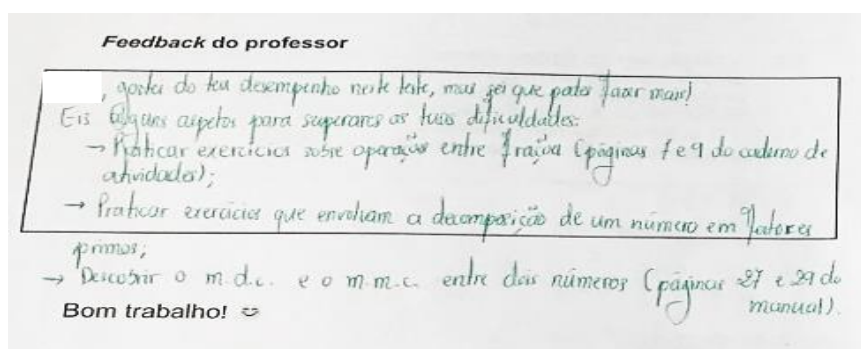 Feedback do professor
, gostei do teu desempenho neste teste, mas sei que podes fazer mais!
Eis alguns aspetos para superares as tuas dificuldades:
→ Praticar exercícios sobre operações entre frações (páginas 7 e 9 do caderno de
atividades);
→ Praticar exercícios que envolvam a decomposição de um número em fatores
primos;
→ Descobrir o m.d.c. e o m.m.c. entre dois números (páginas 27 e 29 do
manual).
Bom trabalho! ☺